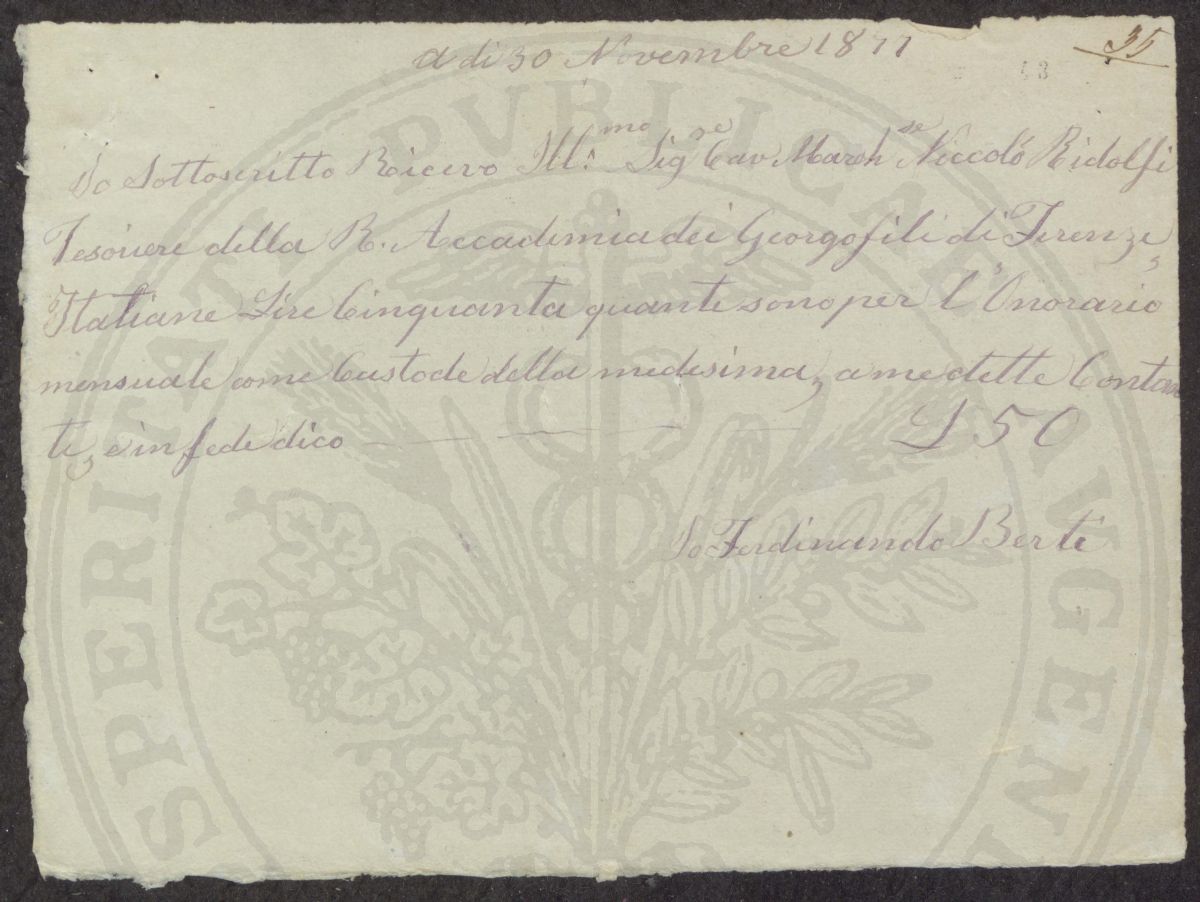 a di 30 Novembre 1877
35
43
Io Sottoscritto Ricevo Ill:mo Sigre Cav. Marchse Niccoló Ridolfi
Tesoriere della R. Accademia dei Georgofili di Firenze,
Italiane Lire Cinquanta quante sono per l'Onorario
mensuale come Custode della medesima, a me dette Contan
ti, e in fede dico — — — — £ 50
Io Ferdinando Berti
PROSPERITATI PVBLICAE AVGENDAE